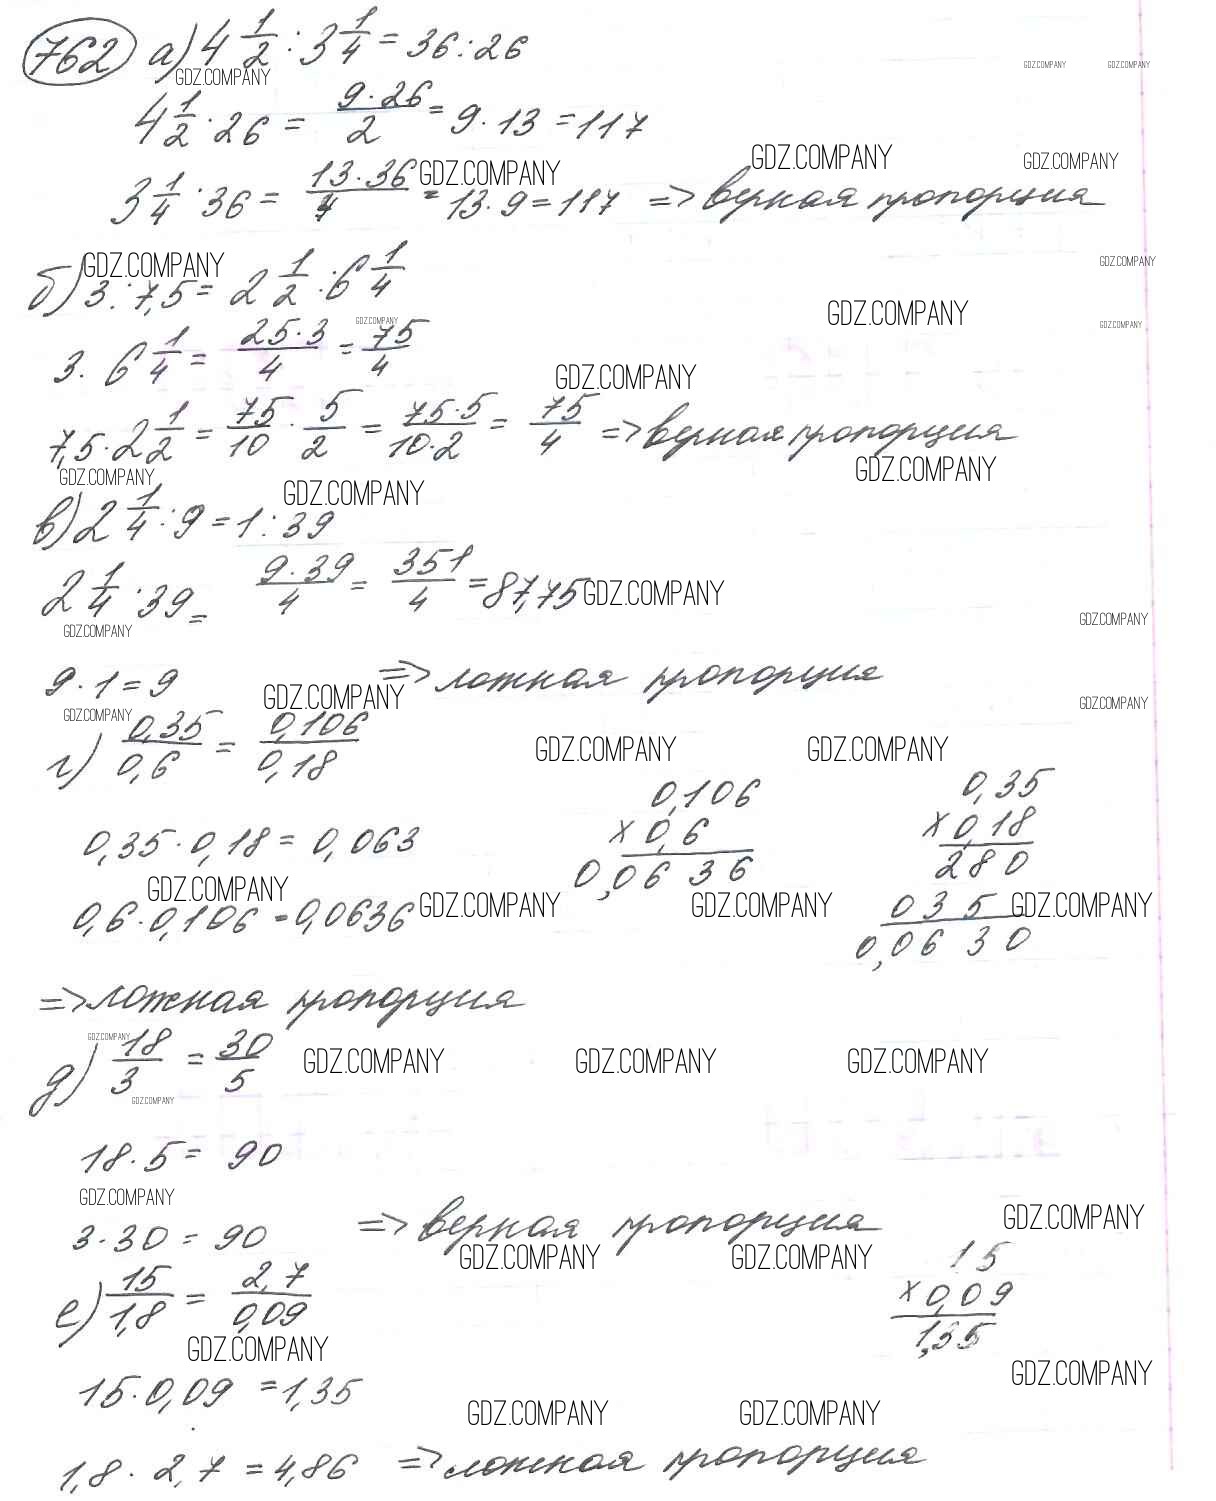 762 а) 4 1/2 : 3 1/4 = 36 : 26
GDZ.COMPANY GDZ.COMPANY GDZ.COMPANY
4 1/2 · 26 = 9·26/2 = 9·13 = 117
GDZ.COMPANY GDZ.COMPANY GDZ.COMPANY
3 1/4 · 36 = 13·36/4 = 13·9 = 117 => верная пропорция
GDZ.COMPANY GDZ.COMPANY
б) 3 : 7,5 = 2 1/2 : 6 1/4
GDZ.COMPANY GDZ.COMPANY GDZ.COMPANY
3 · 6 1/4 = 25·3/4 = 75/4
GDZ.COMPANY
7,5 · 2 1/2 = 75/10 · 5/2 = 75·5/10·2 = 75/4 => верная пропорция
GDZ.COMPANY GDZ.COMPANY GDZ.COMPANY
в) 2 1/4 : 9 = 1 : 39
2 1/4 · 39 = 9·39/4 = 351/4 = 87,75 GDZ.COMPANY
GDZ.COMPANY GDZ.COMPANY
9 · 1 = 9 => ложная пропорция
GDZ.COMPANY GDZ.COMPANY GDZ.COMPANY
г) 0,35/0,6 = 0,106/0,18
GDZ.COMPANY GDZ.COMPANY
0,106 0,35
× 0,6 × 0,18
0,35 · 0,18 = 0,063
0,0636 280
GDZ.COMPANY GDZ.COMPANY GDZ.COMPANY GDZ.COMPANY
0,6 · 0,106 = 0,0636 035
0,0630
=> ложная пропорция
GDZ.COMPANY
д) 18/3 = 30/5 GDZ.COMPANY GDZ.COMPANY GDZ.COMPANY
GDZ.COMPANY
18 · 5 = 90
GDZ.COMPANY GDZ.COMPANY
3 · 30 = 90 => верная пропорция
GDZ.COMPANY GDZ.COMPANY
е) 15/1,8 = 2,7/0,09
15
× 0,09
1,35
GDZ.COMPANY GDZ.COMPANY
15 · 0,09 = 1,35
GDZ.COMPANY GDZ.COMPANY
1,8 · 2,7 = 4,86 => ложная пропорция